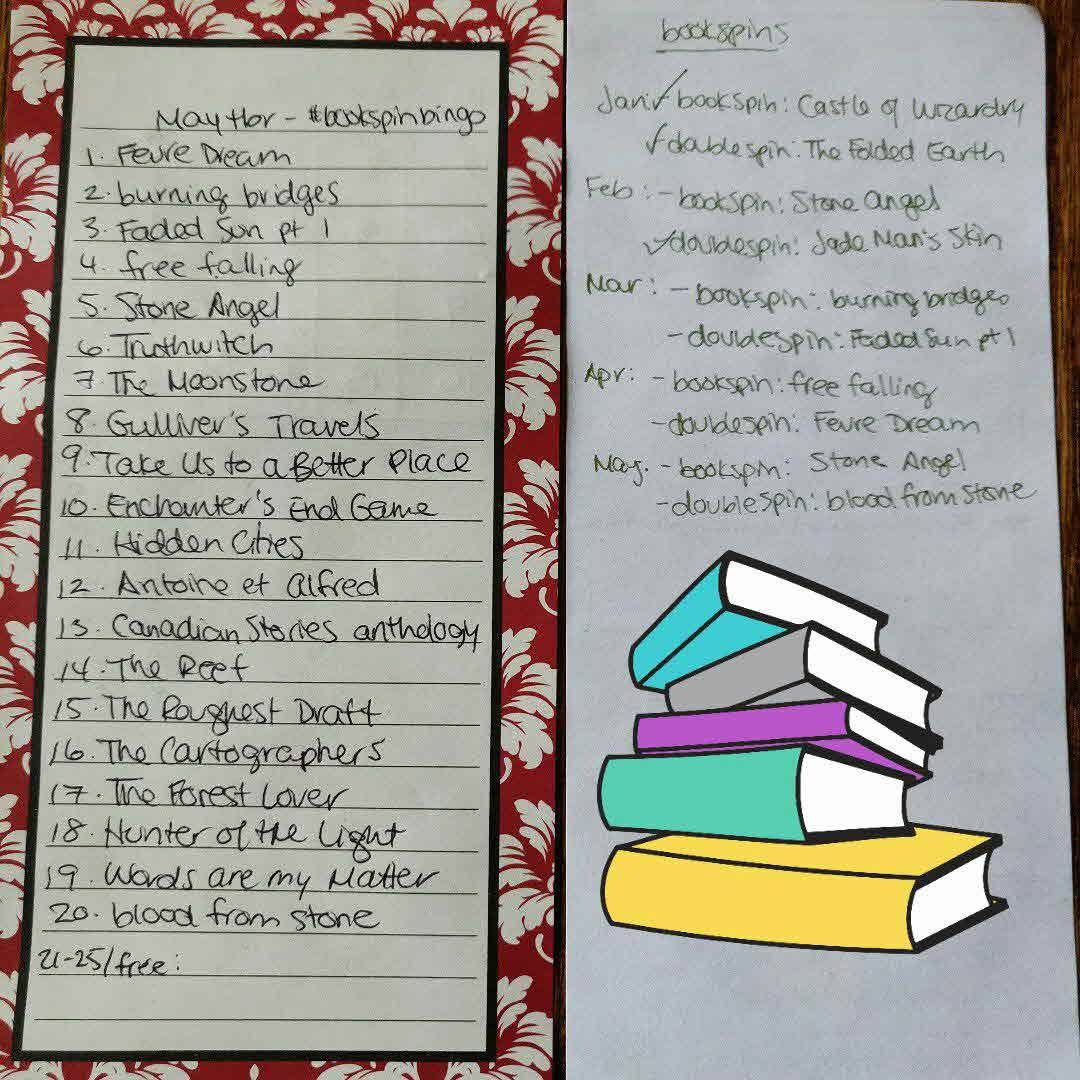 May tbr - #bookspinbingo
1. Fevre Dream
2. burning bridges
3. Faded Sun pt 1
4. free falling
5. Stone Angel
6. Truthwitch
7. The Moonstone
8. Gulliver's Travels
9. Take Us to a Better Place
10. Enchanter's End Game
11. Hidden Cities
12. Antoine et Alfred
13. Canadian Stories anthology
14. The Reef
15. The Roughest Draft
16. The Cartographers
17. The Forest Lover
18. Hunter of the Light
19. Words are my Matter
20. blood from stone
21-25/free:
bookspins
Jan: ✓ bookspin: Castle of Wizardry
✓ doublespin: The Folded Earth
Feb: - bookspin: Stone Angel
✓ doublespin: Jade Man's Skin
Mar: - bookspin: burning bridges
- doublespin: Faded Sun pt 1
Apr: - bookspin: free falling
- doublespin: Fevre Dream
May: - bookspin: Stone Angel
- doublespin: blood from stone